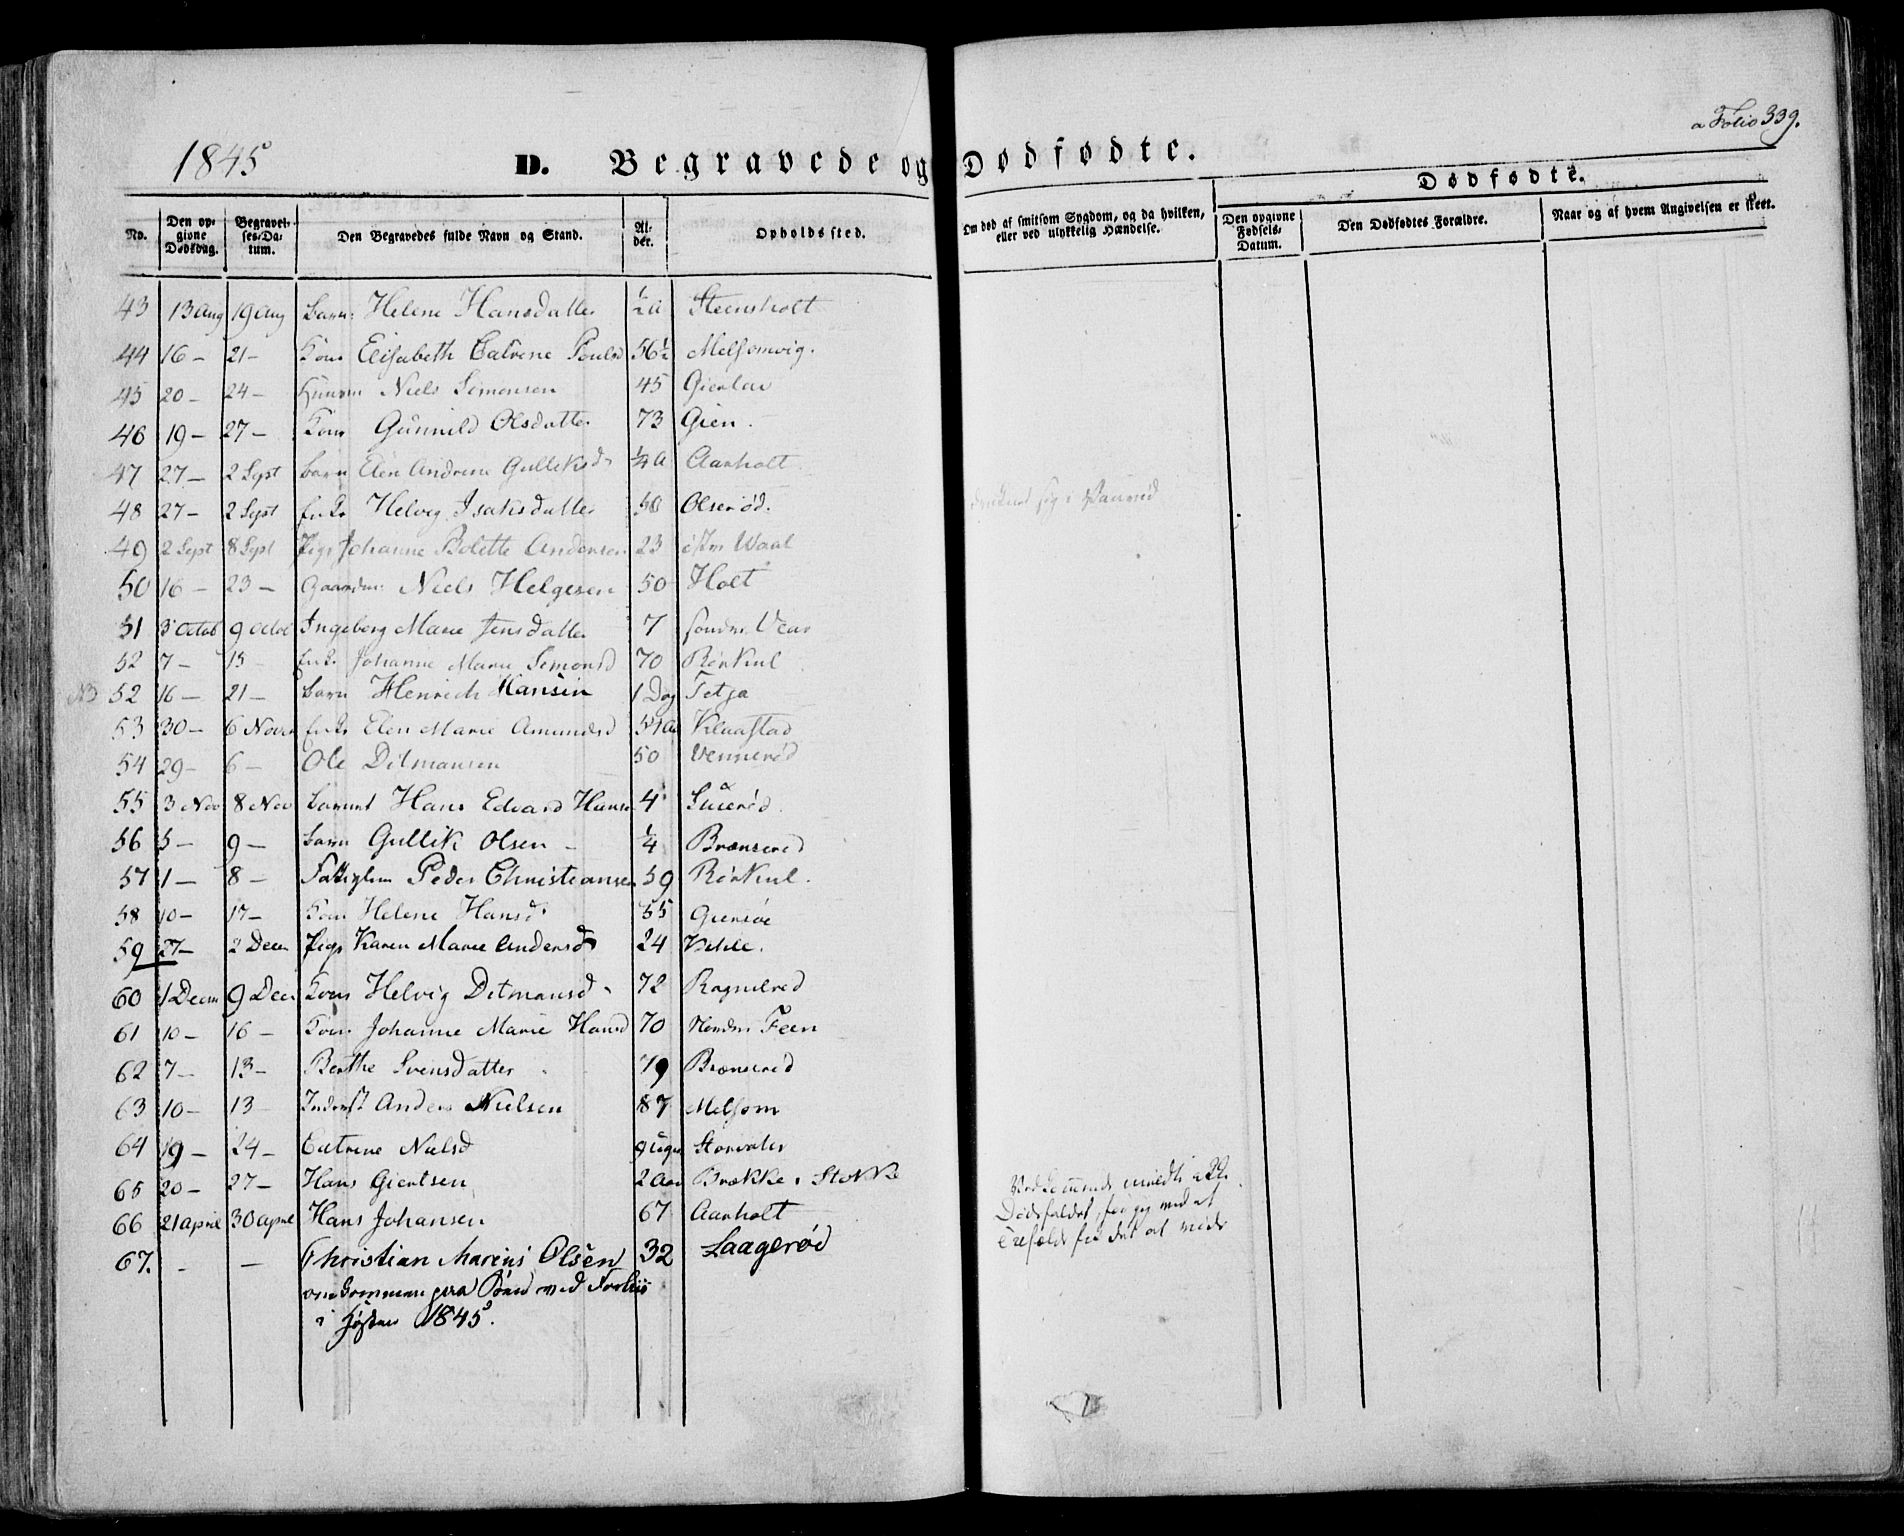 a Folio 339.
1845 D. Begravede og Dødfødte.
Dødfødte.
No. Den opgivne Dødsdag. Begravelses-Datum. Den Begravedes fulde Navn og Stand. Alder. Opholdssted. Om død af smitsom Sygdom, og da hvilken, eller ved ulykkelig Hændelse. Den opgivne Fødsels-Datum. Den Dødfødtes Forældre. Naar og af hvem Angivelsen er skeet.
43 13 Aug 19 Aug Barn Helene Hansdatter ½ A Steensholt
44 16 – 21 – Kone Elisabeth Catrine Poulsd 56½ Melsomvig.
45 20 – 24 – Huusm Niels Simonsen 45 Gierlau
46 19 – 27 – Kone Gunnild Olsdatter 73 Gien
47 27 – 2 Sept Barn Elen Andrine Gulliksd ¼ A Aarholt
48 27 – 2 Sept Enke Helvig Isaksdatter 50 Olserød. sig i
49 2 Sept 8 Sept Pige Johanne Bolette Andersen 23 østre Waal
50 16 – 23 – Gaardm. Niels Helgesen 50 Holt
51 3 Octob 9 Octob Ingeborg Marie Jensdatter 7 søndre Vear
52 7 – 13 – Enke Johanne Marie Simonsd 70 Rørkiul
NB 52 16 – 21 – Barn Henrich Hansen 1 Dag Tetja
53 30 – 6 Novr Enke Elen Marie Amundsd 54 Aar Klaastad
54 29 – 6 – Ole Ditmansen 50 Vennerød
55 3 Nov 8 Nov Barnet Hans Edvard Hanse 4
56 5 – 9 – Barn Gullik Olsen – ¼ Brænserød
57 1 – 8 – Fattiglem Peder Christiansen 59 Rørkiul.
58 10 – 17 – Kone Helene Hansd 55 Giersøe
59 27 – 2 Decr Pige Karen Marie Andersd 24
60 1 Decm 9 Decr Kone Helvig Ditmansd 72 Ragnilrød
61 10 – 16 – Kone Johanne Marie Hansd 70 Nordre Feen
62 7 – 13 – Berthe Svensdatter 79 Brænserød
63 10 – 13 Inderst Anders Nielsen 87 Melsom
64 19 – 24 – Catrine Nielsd 9 Uger Storevaler
65 20 – 27 – Hans Giertsen 2 Aar Brække i Stokke
66 21 april 30 april Hans Johansen 67 Aarholt
67. – – Christian Marius Olsen 32 Laagerød
omkommen paa Søen ved Forliis
i Høsten 1845.